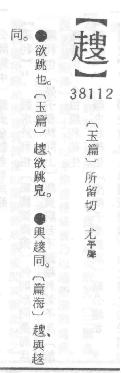 【】
38112
〔玉篇〕所留切 尤平聲
●欲跳也。〔玉篇〕欲跳皃。●與同。〔篇海〕、與
同。